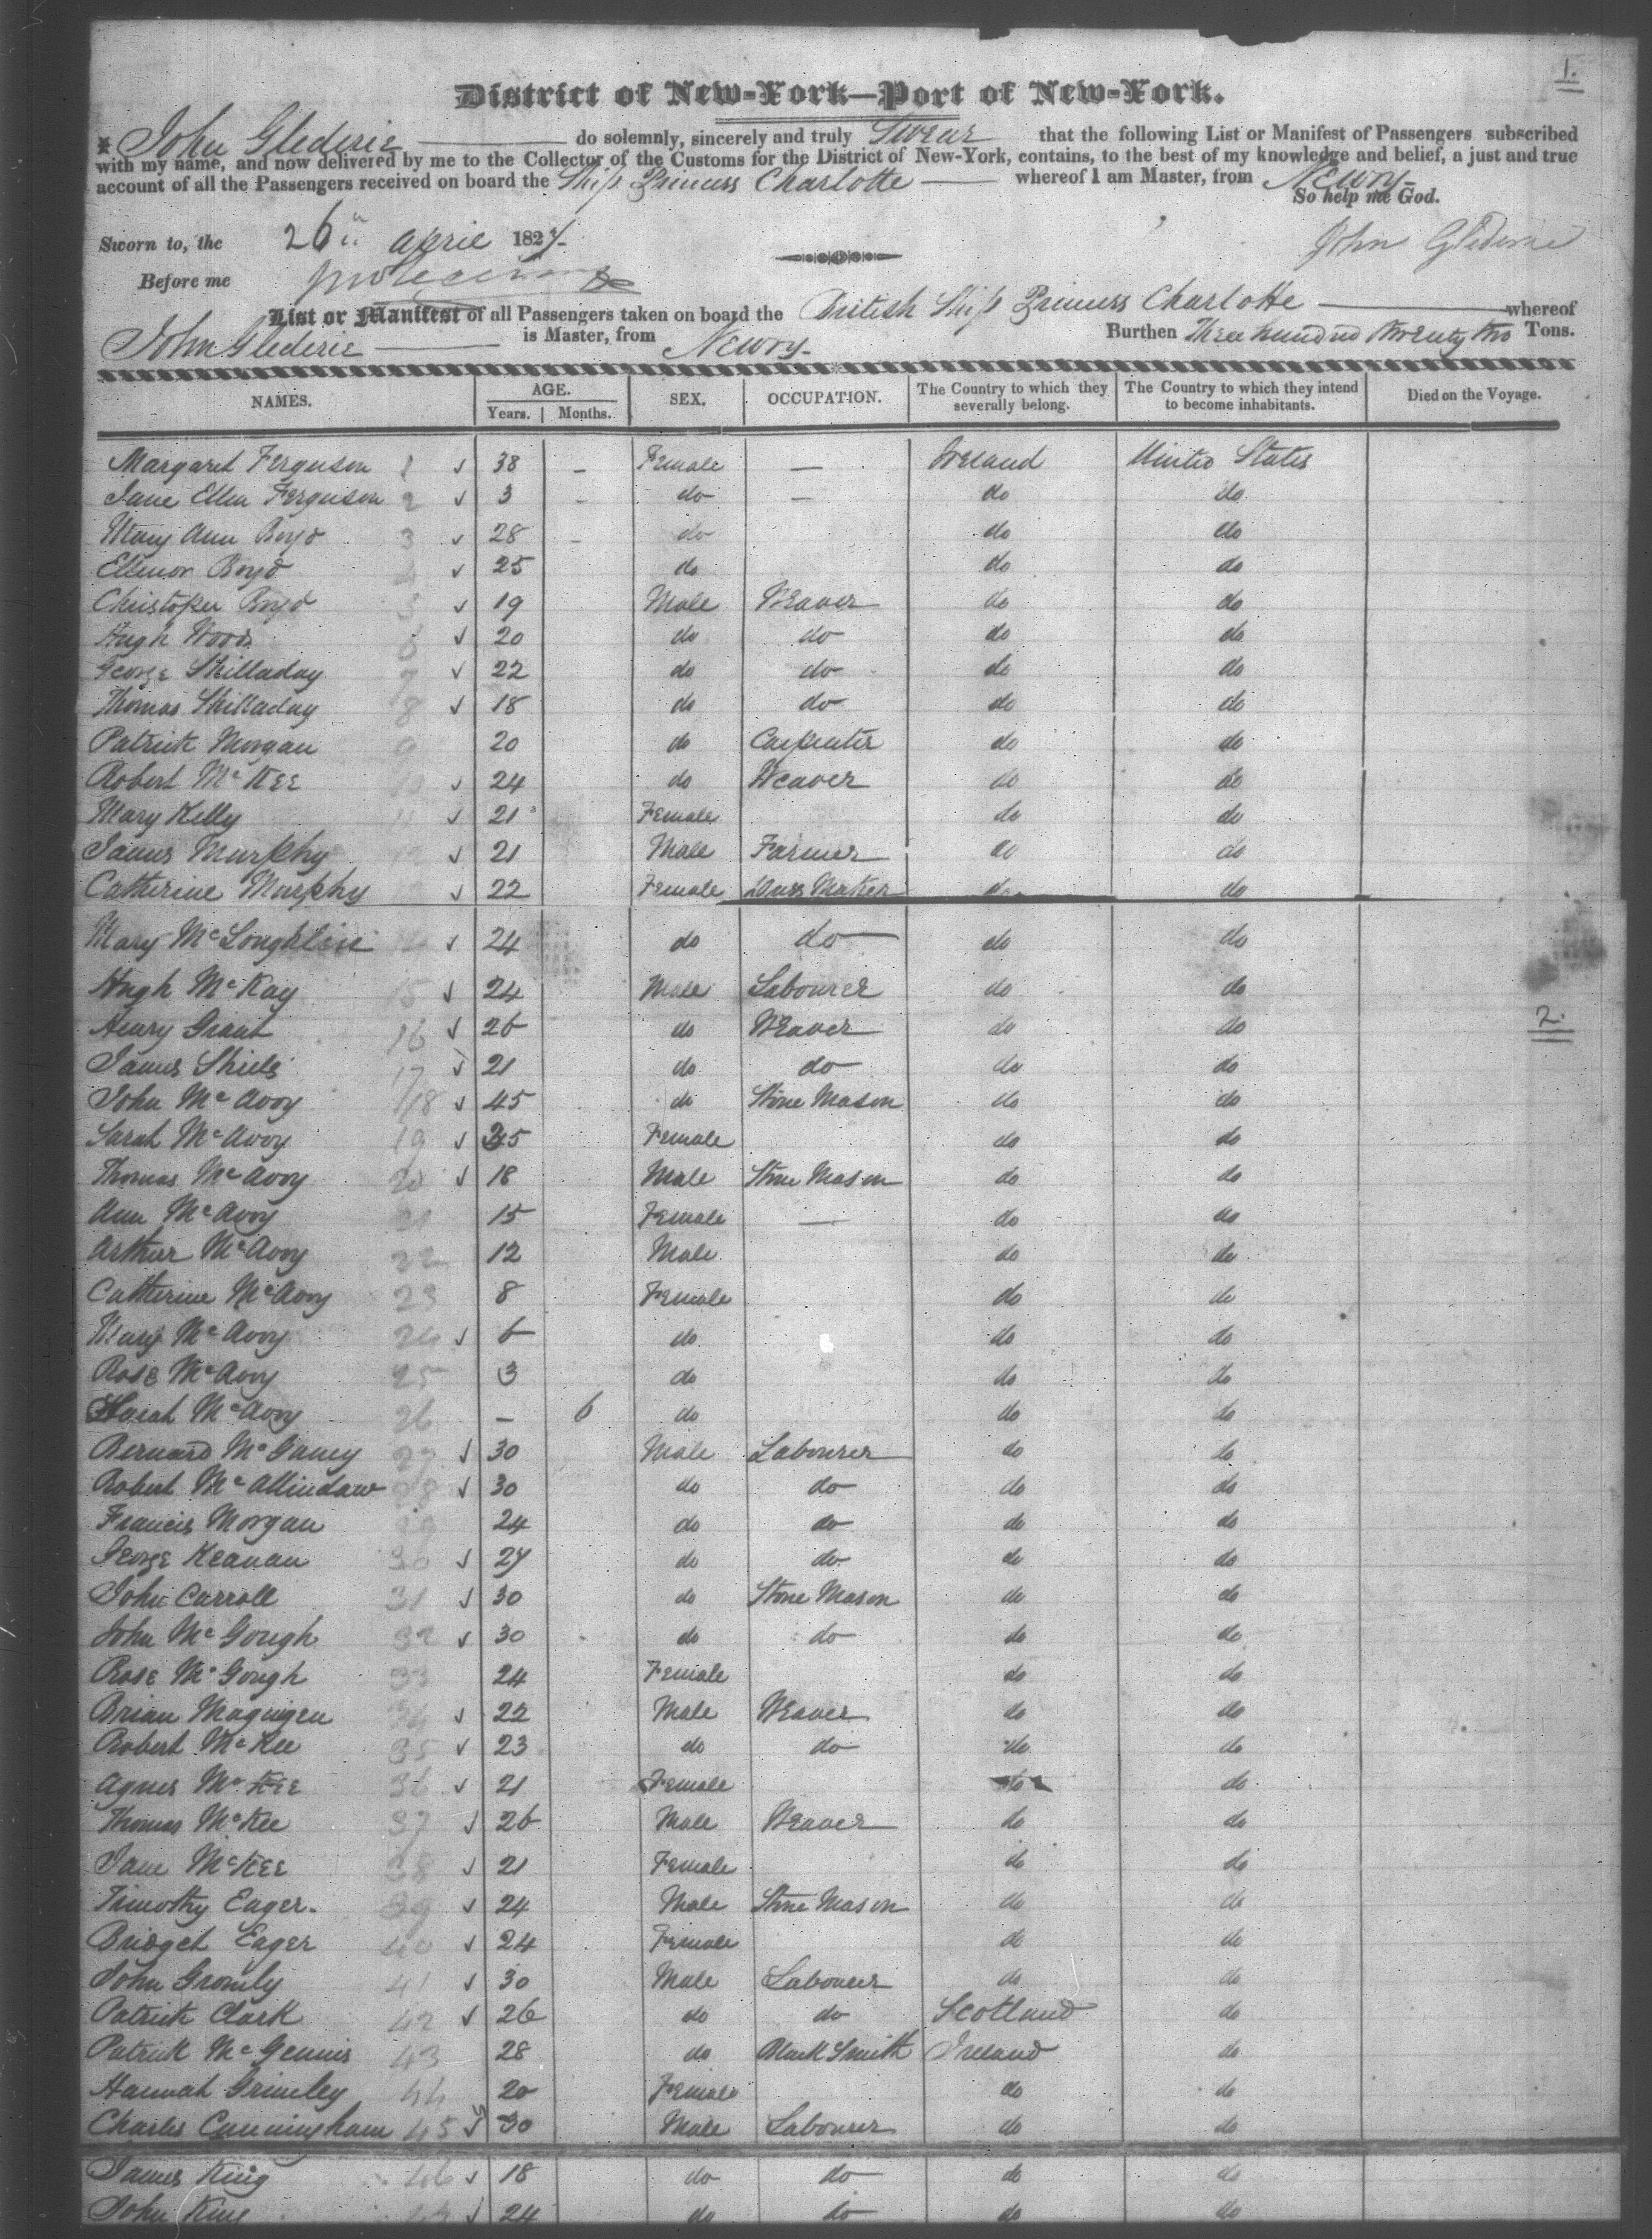 1.
District of New-York—Port of New-York.
John Glederie do solemnly, sincerely and truly Swear that the following List or Manifest of Passengers subscribed
with my name, and now delivered by me to the Collector of the Customs for the District of New-York, contains, to the best of my knowledge and belief, a just and true
account of all the Passengers received on board the Ship Princess Charlotte whereof I am Master, from Newry
So help me God.
Sworn to, the 26th April 1827. John Glederie
Before me
List or Manifest of all Passengers taken on board the British Ship Princess Charlotte whereof
John Glederie is Master, from Newry. Burthen Three hundred twenty two Tons.
NAMES. AGE. Years. Months. SEX. OCCUPATION. The Country to which they severally belong. The Country to which they intend to become inhabitants. Died on the Voyage.
Margaret Ferguson 1 ✓ 38 – Female — Ireland United States
Jane Ellen Ferguson 2 ✓ 3 – do — do do
Mary Ann Boyd 3 ✓ 28 – do do do
Ellenor Boyd 4 ✓ 25 do do do
Christopher Boyd 5 ✓ 19 Male Weaver do do
Hugh Wood 6 ✓ 20 do do do do
George Shilladay 7 ✓ 22 do do do do
Thomas Shilladay 8 ✓ 18 do do do do
Patrick Morgan 9 20 do Carpenter do do
Robert McKee 10 ✓ 24 do Weaver do do
Mary Kelly 11 ✓ 21 Female do do
James Murphy 12 ✓ 21 Male Farmer do do
Catherine Murphy 13 ✓ 22 Female Dress Maker do do
Mary McLoughlin 14 ✓ 24 do do do do
Hugh McKay 15 ✓ 24 Male Labourer do do
2.
Henry Grant 16 ✓ 26 do Weaver do do
James Shiels 17 ✓ 21 do do do do
John McAvoy 18 ✓ 45 do Stone Mason do do
Sarah McAvoy 19 ✓ 35 Female do do
Thomas McAvoy 20 ✓ 18 Male Stone Mason do do
Ann McAvoy 21 15 Female — do do
Arthur McAvoy 22 12 Male do do
Catherine McAvoy 23 8 Female do do
Mary McAvoy 24 ✓ 6 do do do
Rose McAvoy 25 3 do do do
Sarah McAvoy 26 – 6 do do do
Bernard McGaney 27 ✓ 30 Male Labourer do do
Robert McAllindaw 28 ✓ 30 do do do do
Francis Morgan 29 24 do do do do
George Keanan 30 ✓ 27 do do do do
John Carroll 31 ✓ 30 do Stone Mason do do
John McGough 32 ✓ 30 do do do do
Rose McGough 33 24 Female do do
Brian Maguigen 34 ✓ 22 Male Weaver do do
Robert McKee 35 ✓ 23 do do do do
Agnes McKee 36 ✓ 21 Female do do
Thomas McKee 37 ✓ 26 Male Weaver do do
Jane McKee 38 ✓ 21 Female do do
Timothy Eager. 39 ✓ 24 Male Stone Mason do do
Bridget Eager 40 ✓ 24 Female do do
John Gromly 41 ✓ 30 Male Labourer do do
Patrick Clark 42 ✓ 26 do do Scotland do
Patrick McGennis 43 28 do Black Smith Ireland do
Hannah Grimley 44 20 Female do do
Charles Cunningham 45 ✓ 30 Male Labourer do do
James King 46 ✓ 18 do do do do
John King 47 ✓ 24 do do do do